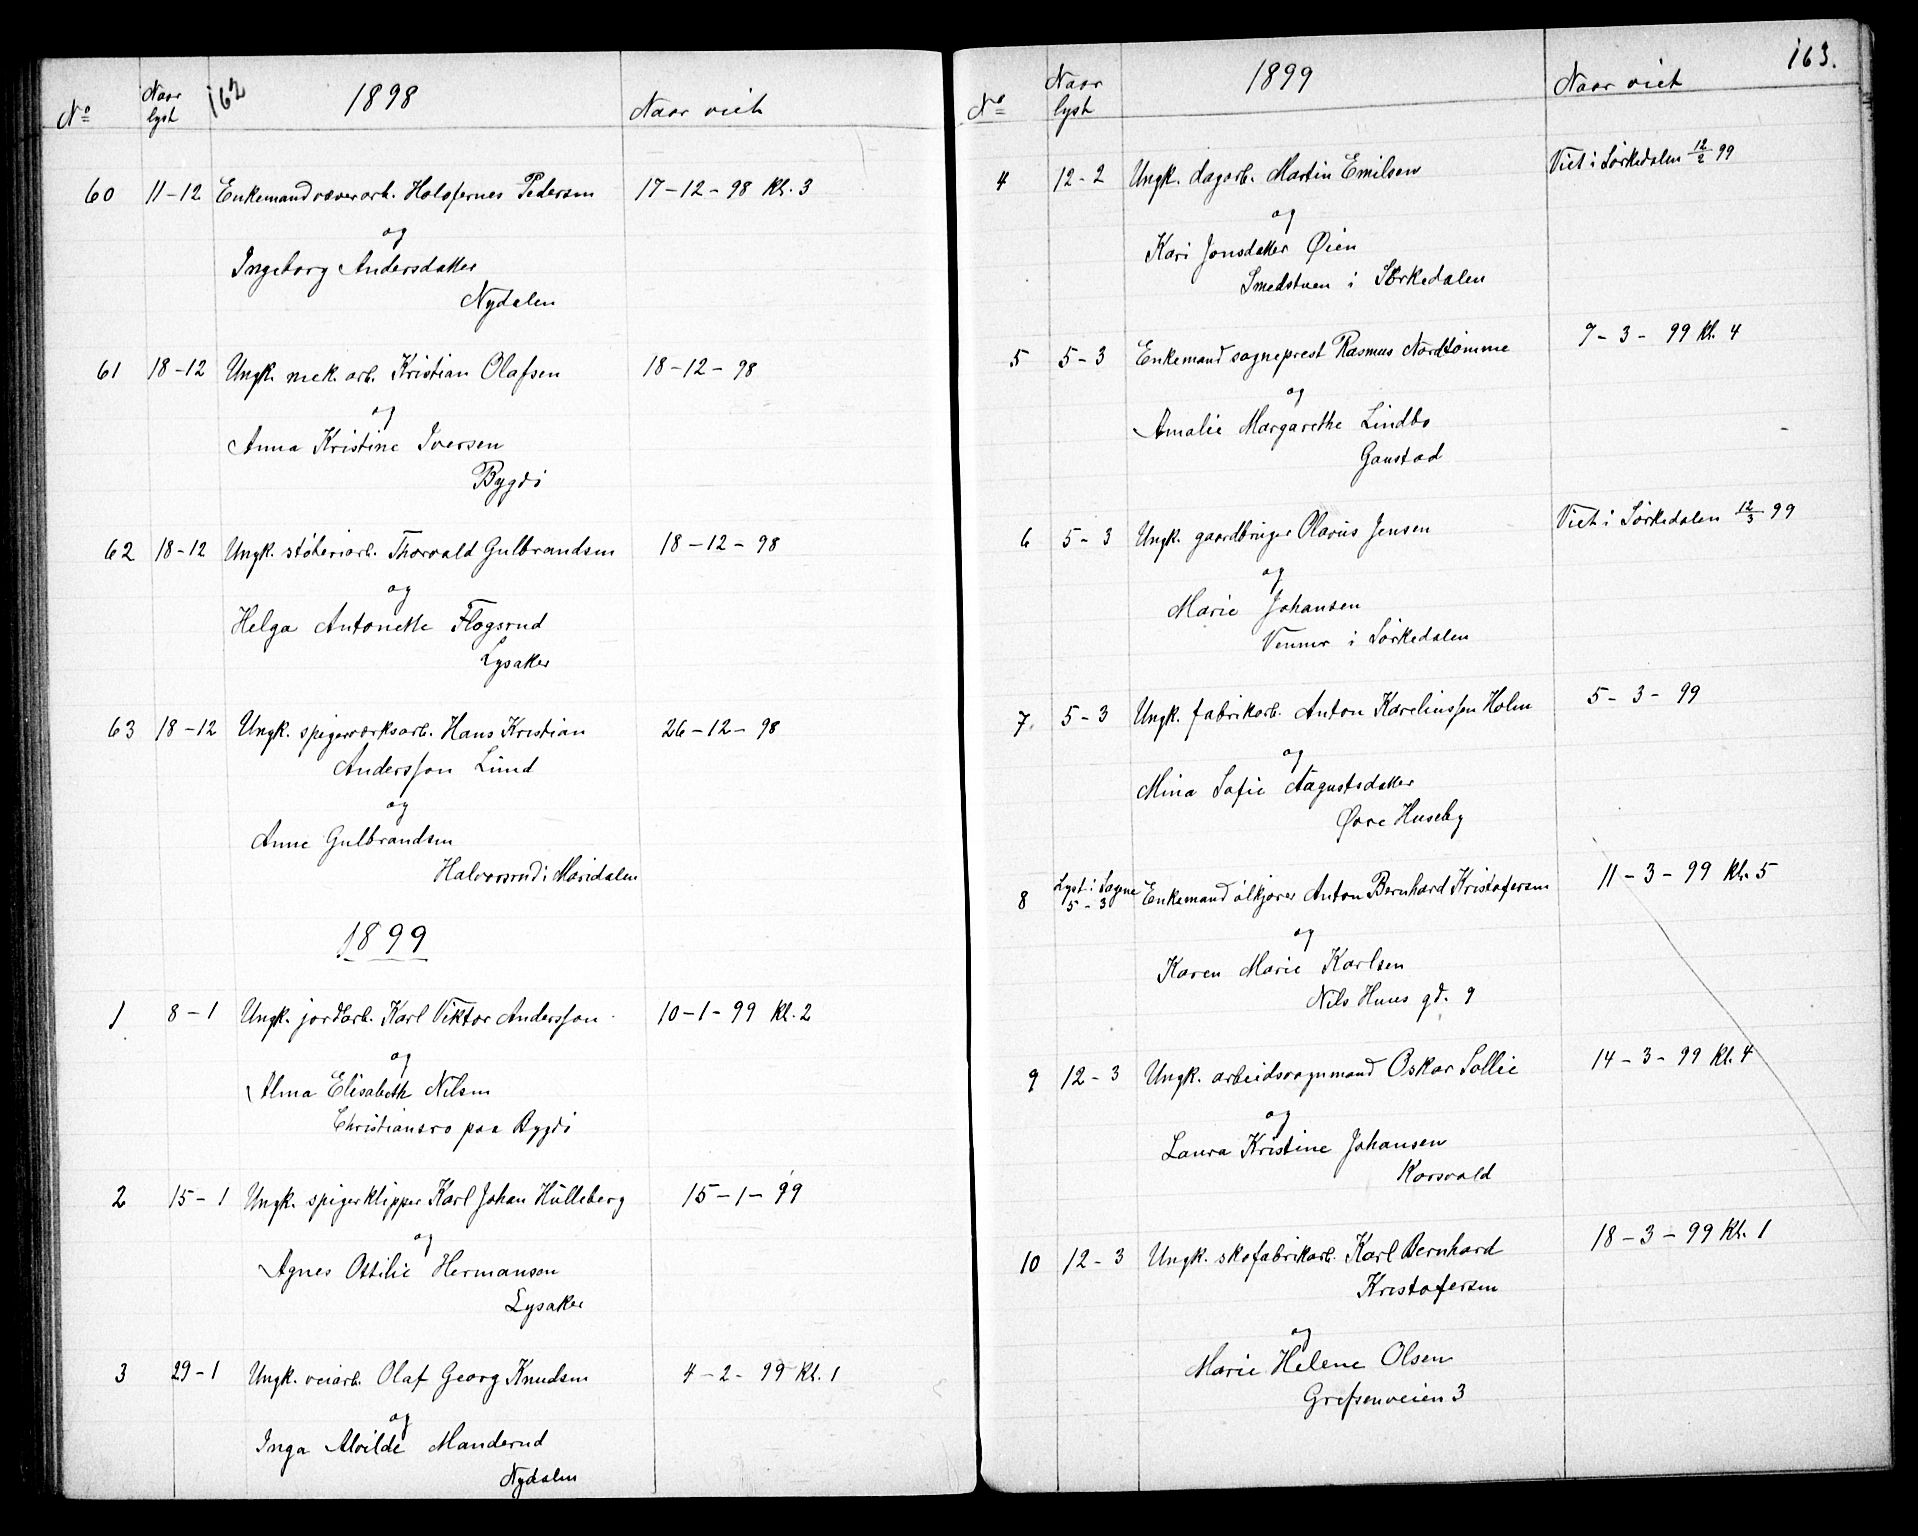 162
No
Naar
lyst
1898
Naar viet
60 11-12 Enkemand væverarb. Holofernes Pedersen 17-12-98 Kl. 3
og
Ingeborg Andersdatter
Nydalen
61 18-12 Ungk. mek. arb. Kristian Olafsen 18-12-98
og
Anna Kristine Iversen
Bygdö
62 18-12 Ungk. støberiarb. Thorvald Gulbrandsen 18-12-98
og
Helga Antonette Flogsrud
Lysaker
63 18-12 Ungk. spigerværksarb. Hans Kristian 26-12-98
Andersson Lund
og
Anne Gulbrandsen
Halvorsrud i Maridalen
1899
1 8-1 Ungk. jordarb. Karl Viktor Andersson 10-1-99 Kl. 2
og
Alma Elisabeth Nilsen
Christiansro paa Bygdö
2 15-1 Ungk. spigerklipper Karl Johan Hülleberg 15-1-99
og
Agnes Ottilie Hermansen
Lysaker
3 29-1 Ungk. veiarb. Olaf Georg Knudsen 4-2-99 Kl. 1
og
Inga Alvilde Manderud
Nydalen
163.
No
Naar
lyst
1899
Naar viet
4 12-2 Ungk. dagarb. Martin Emilsen Viet i Sörkedalen 12/2 99
og
Kari Jonsdatter Øien
Smedstuen i Sörkedalen
5 5-3 Enkemand sogneprest Rasmus Nordtömme 7-3-99 Kl. 4
og
Amalie Margarethe Lindbo
Gaustad
6 5-3 Ungk. gaardbruger Olavus Jensen Viet i Sörkedalen 12/3 99
og
Marie Johansen
Venner i Sörkedalen
7. 5-3 Ungk. fabrikarb. Anton Karelinssen Holm 5-3-99
og
Mina Sofie Augustsdatter
Øvre Huseby
8 Lyst i Sagene
5-3 Enkemand ölkjører Anton Bernhard Kristofersen 11-3-99 Kl. 5
og
Karen Marie Karlsen
Nils Huus gd. 9
9 12-3 Ungk. arbeidsvognmand Oskar Sollie 14-3-99 Kl. 4
og
Laura Kristine Johansen
Korsvold
10 12-3 Ungk. skofabrikarb. Karl Bernhard 18-3-99 Kl. 1
Kristofersen
og
Marie Helene Olsen
Grefsenveien 3